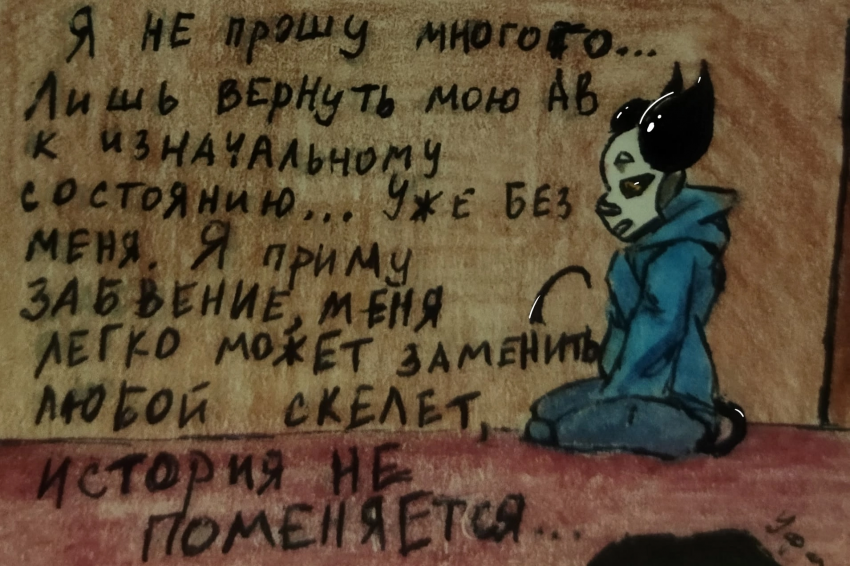 Я НЕ ПРОШУ МНОГОГО...
ЛИШЬ ВЕРНУТЬ МОЮ АВ
К ИЗНАЧАЛЬНОМУ
СОСТОЯНИЮ... УЖЕ БЕЗ
МЕНЯ. Я ПРИМУ
ЗАБВЕНИЕ, МЕНЯ
ЛЕГКО МОЖЕТ ЗАМЕНИТЬ
ЛЮБОЙ СКЕЛЕТ,
ИСТОРИЯ НЕ
ПОМЕНЯЕТСЯ...